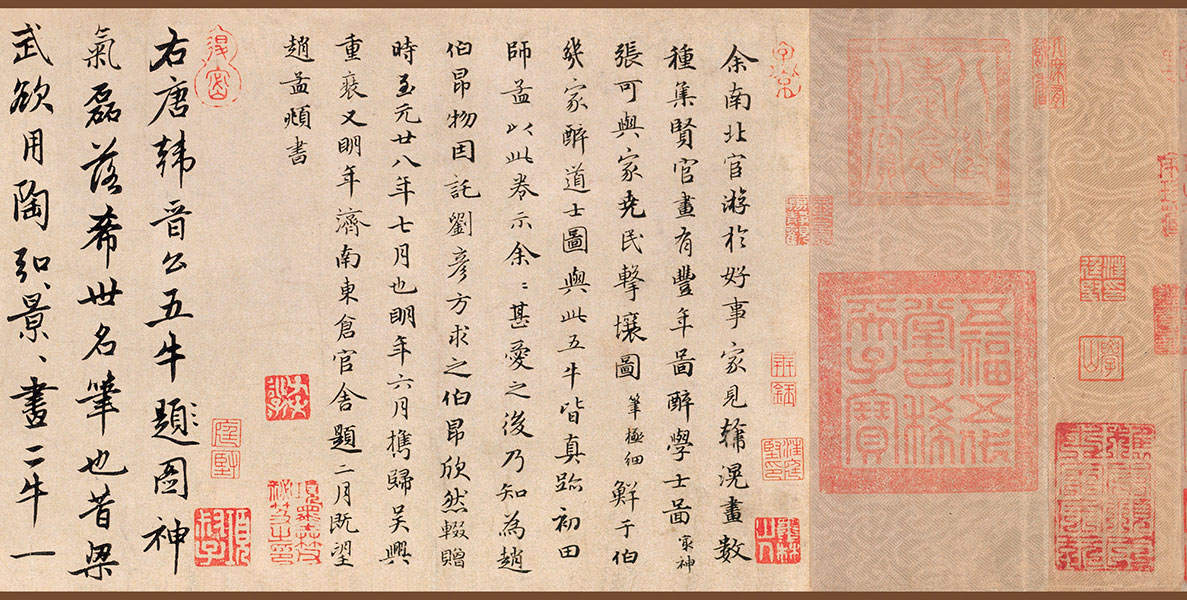 學山
八徵耄念之寶
五福五代
堂古稀
天子寶
余南北宦游於好事家見韓滉畫數
種集賢官畫有豐年啚醉學士啚最神
張可與家堯民擊壤圖筆極細鮮于伯
幾家醉道士圖與此五牛皆真跡初田
師孟以此卷示余〻甚愛之後乃知為趙
伯昂物因託劉彥方求之伯昂欣然輟贈
時至元廿八年七月也明年六月攜歸吳興
重裝又明年濟南東倉官舍題二月既望
趙孟頫書
右唐韓晉公五牛題圖神
氣磊落希世名筆也昔梁
武欲用陶弘景〻畫二牛一